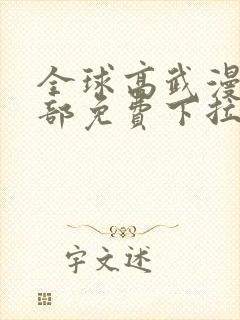 全球高武漫
部免费下拉
字文述